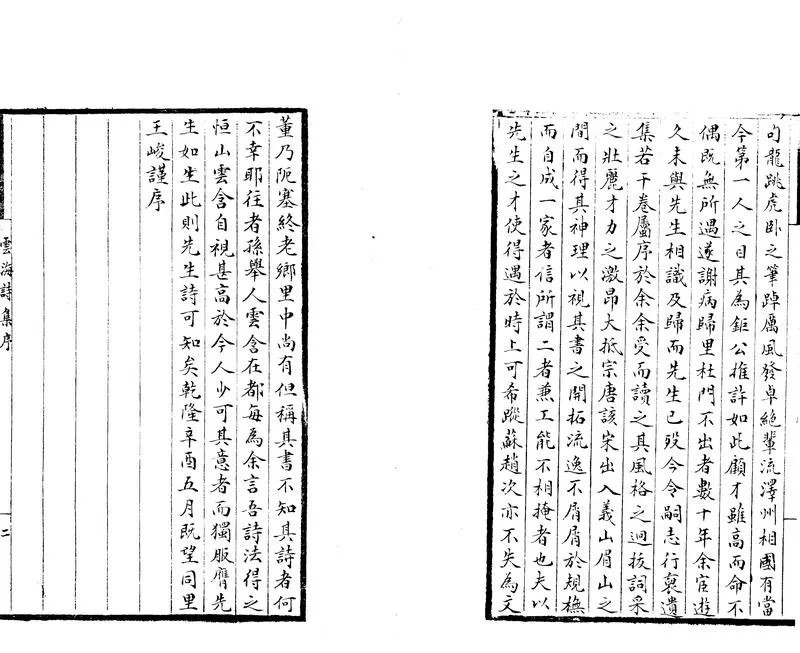 句龍跳虎卧之筆踔厲風發卓絶輩流澤州相國有當
今第一人之目其為鉅公推許如此顧才雖高而命不
偶既無所遇遂謝病歸里杜門不出者數十年余宦遊
久未與先生相識及歸而先生已殁今令嗣志行裒遺
集若干卷屬序於余余受而讀之其風格之迥拔詞采
之壯麗才力之激昂大抵宗唐該宋出入義山眉山之
間而得其神理以視其書之開拓流逸不屑屑於規橅
而自成一家者信所謂二者兼工能不相掩者也夫以
先生之才使得遇於時上可希蹤蘇趙次亦不失為文
董乃阨塞終老鄉里中尚有但稱其書不知其詩者何
不幸耶往者孫舉人雲含在都每為余言吾詩法得之
恒山雲含自視甚高於今人少可其意者而獨服膺先
生如生此則先生詩可知矣乾隆辛酉五月既望同里
王峻謹序
雲海詩集序
二